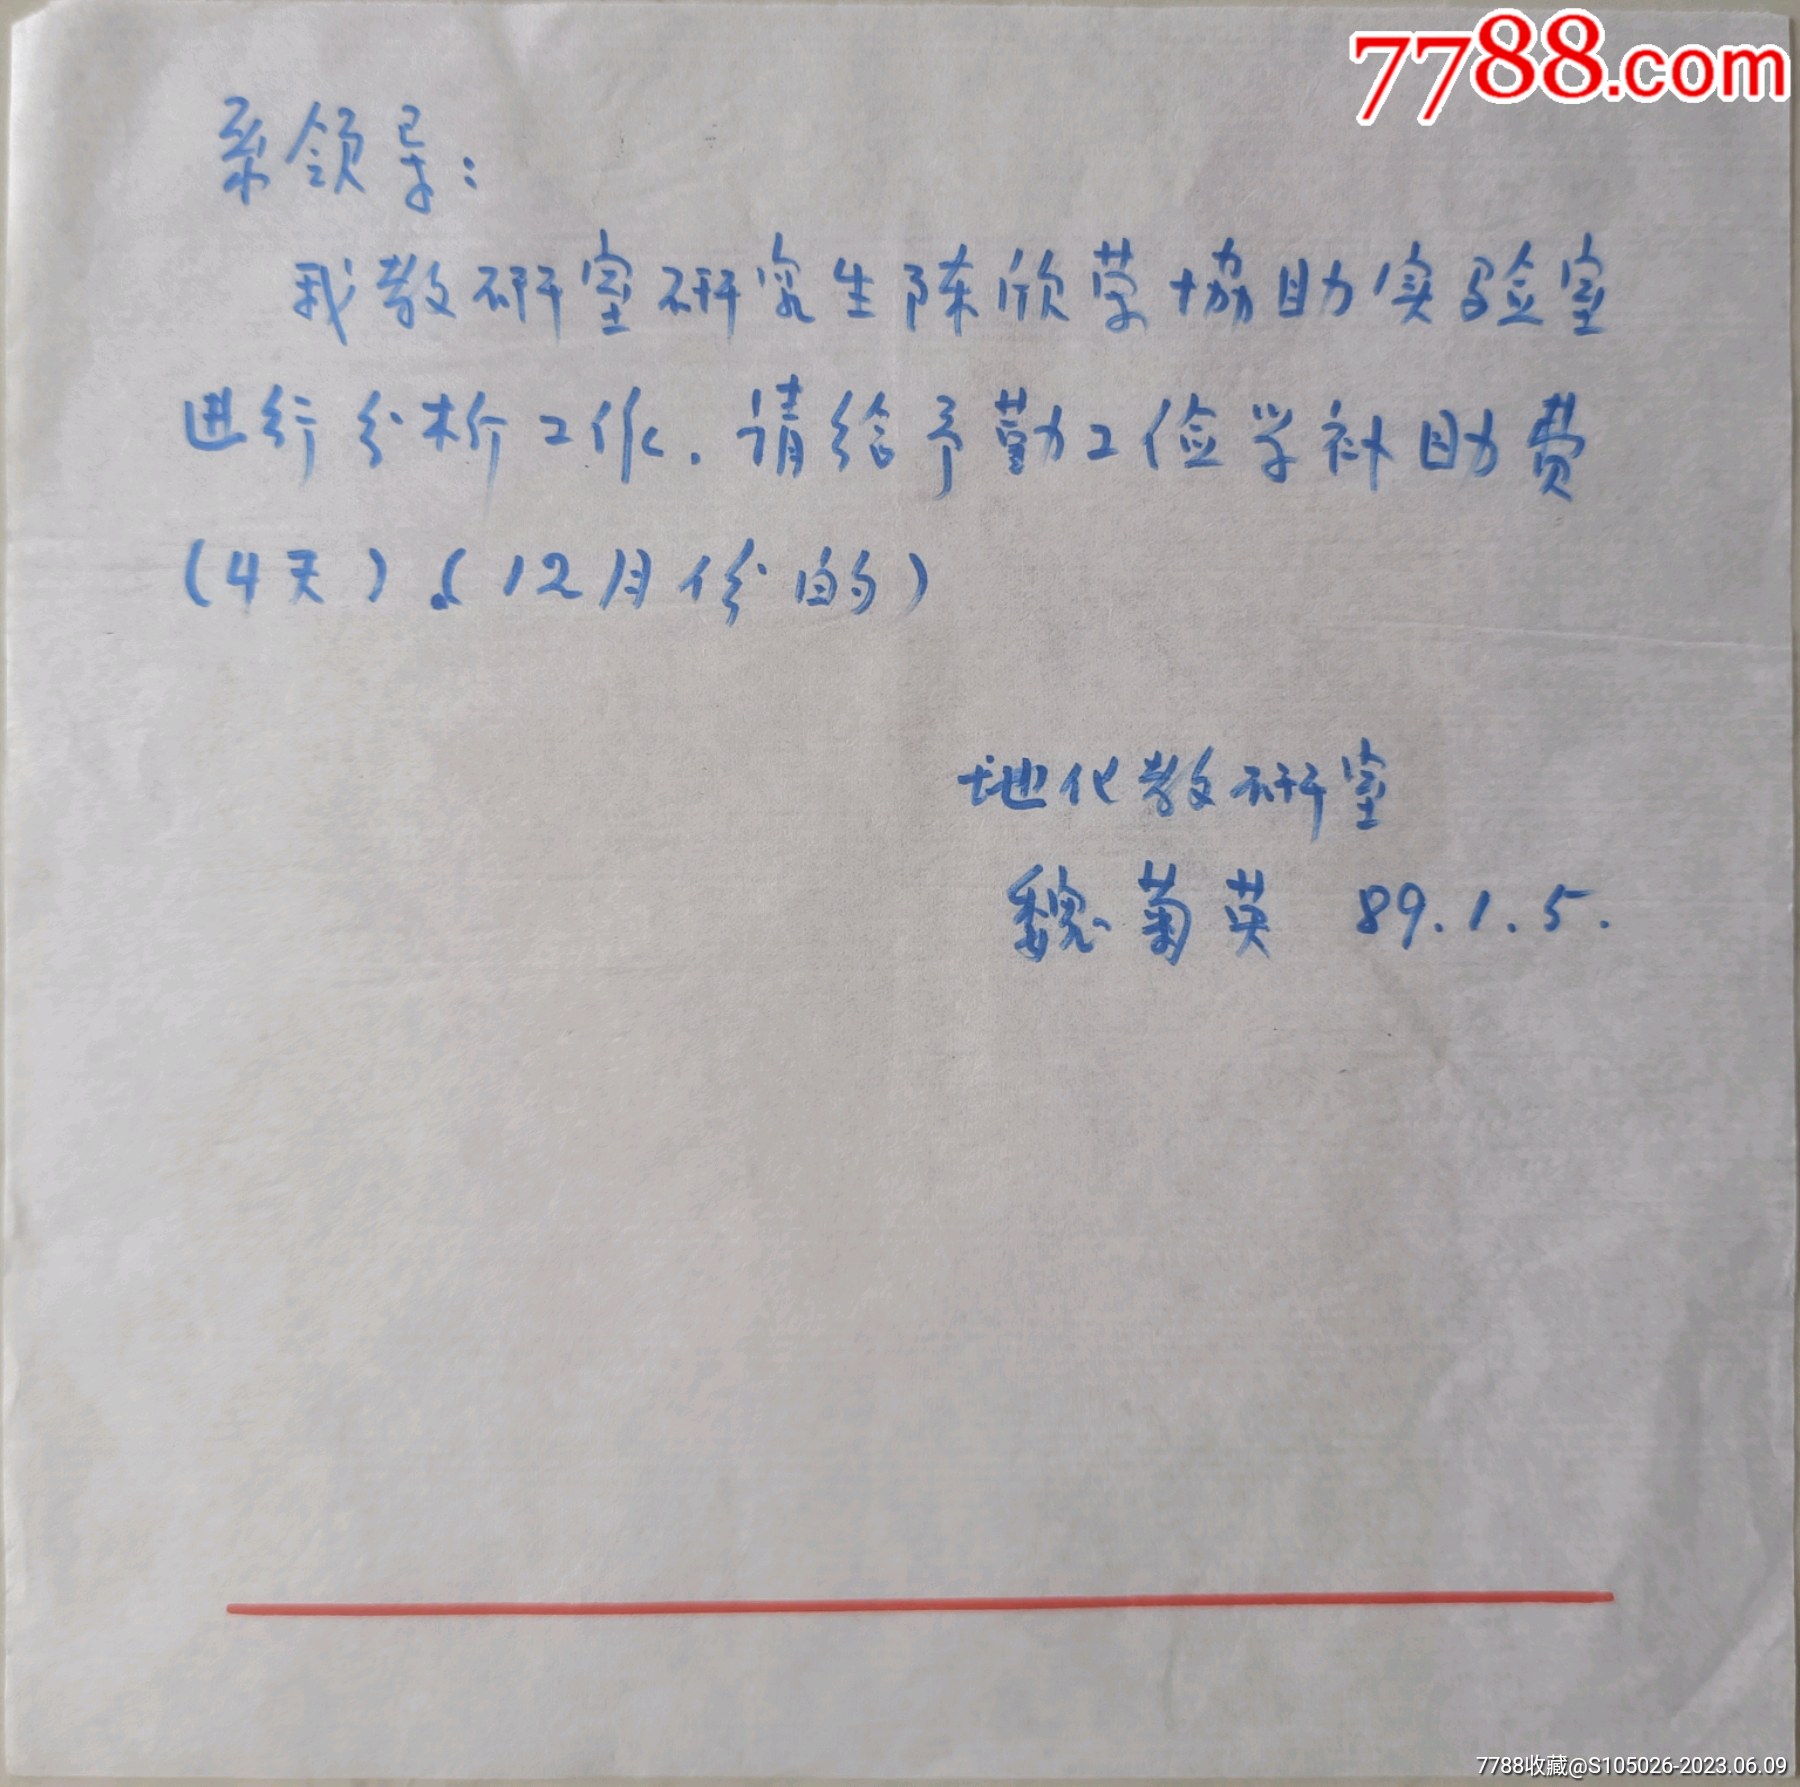 7788.com
系领导：
我教研室研究生陈欣荣協助实验室
进行分析工作. 请给予勤工俭学补助费
(4天)。(12月份的)
地化教研室
魏菊英 89.1.5.
7788收藏@S105026-2023.06.09